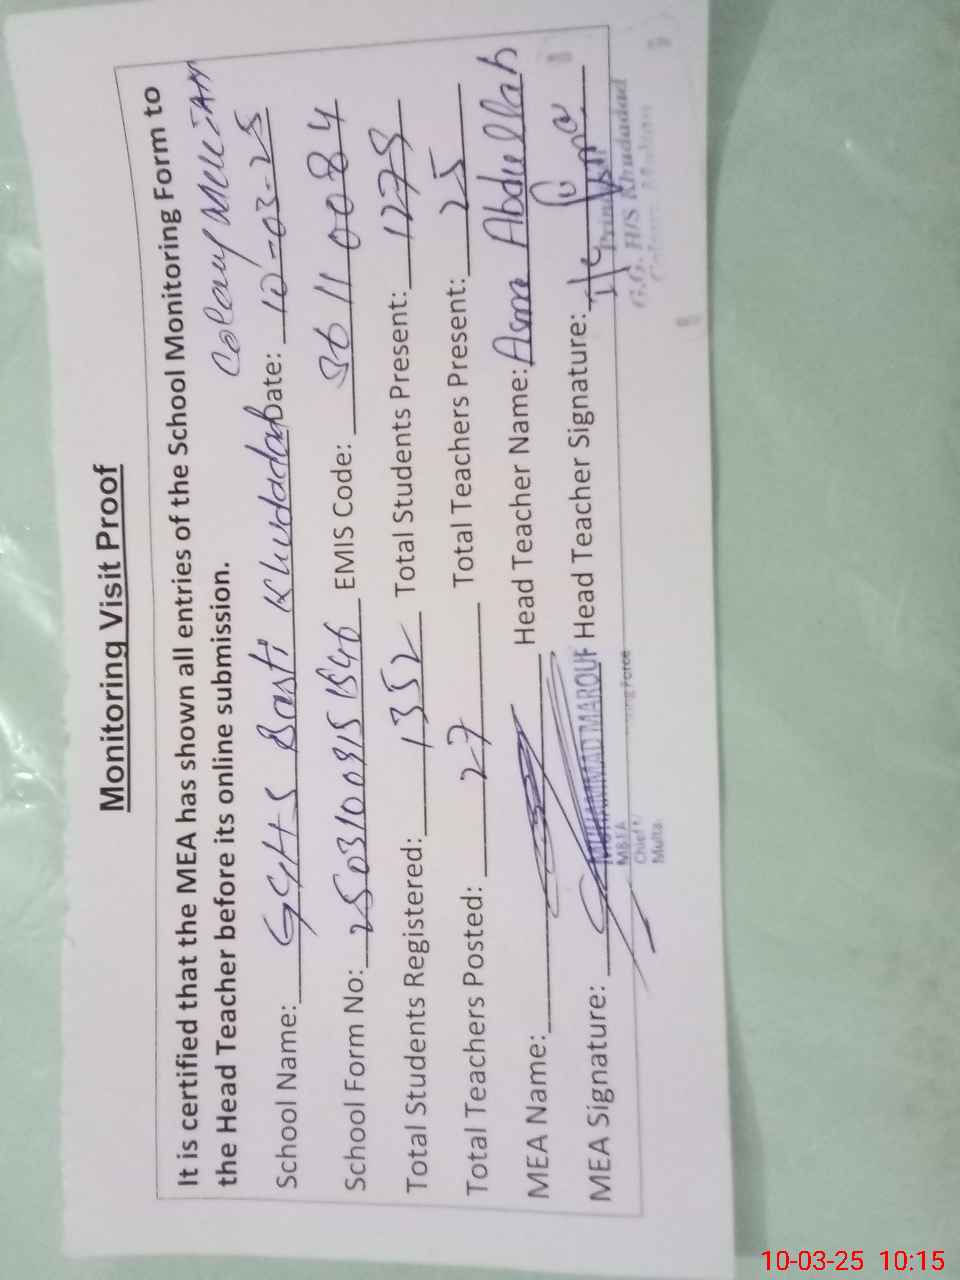 Monitoring Visit Proof
It is certified that the MEA has shown all entries of the School Monitoring Form to
the Head Teacher before its online submission.
Colony Multan
School Name: GGHS Basti Khudadad Date: 10-03-25
School Form No: EMIS Code: 36110084
Total Students Registered: 1352 Total Students Present: 1273
Total Teachers Posted: 27 Total Teachers Present: 25
MEA Name: Head Teacher Name: Asma Abdullah
MEA Signature: MUHAMMAD MAROUF Head Teacher Signature:
M&EA
Chief
G.G. H/S Khudadad
10-03-25 10:15